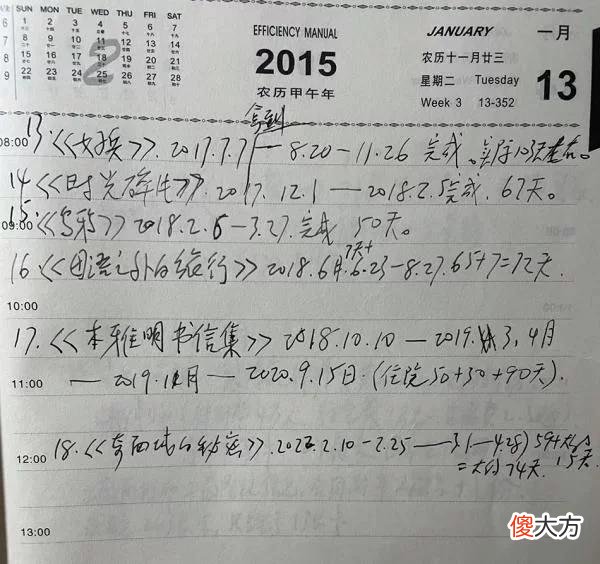 SUN MON TUE WED THU FRI SAT
6 1 2 3 4 5 6 7
7 8 9 10 11 12 13 14
8 15 16 17 18 19 20 21
9 22 23 24 25 26 27 28
2
EFFICIENCY MANUAL
2015
农历甲午年
JANUARY 一月
农历十一月廿三
星期二 Tuesday
Week 3 13-352
13
拿到
08:00 13.《女孩》.2017.7.7 8.20-11.26 完成。实际103天左右。
14《时光碎片》.2017.12.1—2018.2.5完成.67天。
09:00 15.《乌鸦》2018.2.6-3.27.完成 50天。
7天+
16.《国语之外的旅行》2018.6月.6.23-8.27.65+7=72天.
10:00
17.《本雅明书信集》2018.10.10—2019. 3,4月
11:00 — 2019.11月—2020.9.15日.(住院50+30+90天).
12:00 18.《 的秘密》.2022.2.10-2.25—3(—4.28)59天
=大约74天. 15天
13:00
傻大方